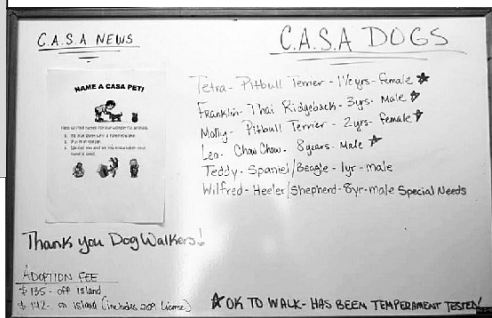 C.A.S.A NEWS
NAME A CASA PET!
Thank you Dog Walkers!
ADOPTION FEE
$135- off island
$142- on island (includes 2019 license)
C.A.S.A DOGS
Tetra- Pitbull Terrier - 1½ yrs- Female ★
Franklin- Thai Ridgeback- 3yrs- Male ★
Molly- Pitbull Terrier - 2yrs- Female ★
Leo- Chow Chow- 8years- Male ★
Teddy- Spaniel/Beagle- 1yr-male
Wilfred- Heeler/Shepherd-8yr-male Special Needs
★ OK TO WALK- HAS BEEN TEMPERAMENT TESTED!